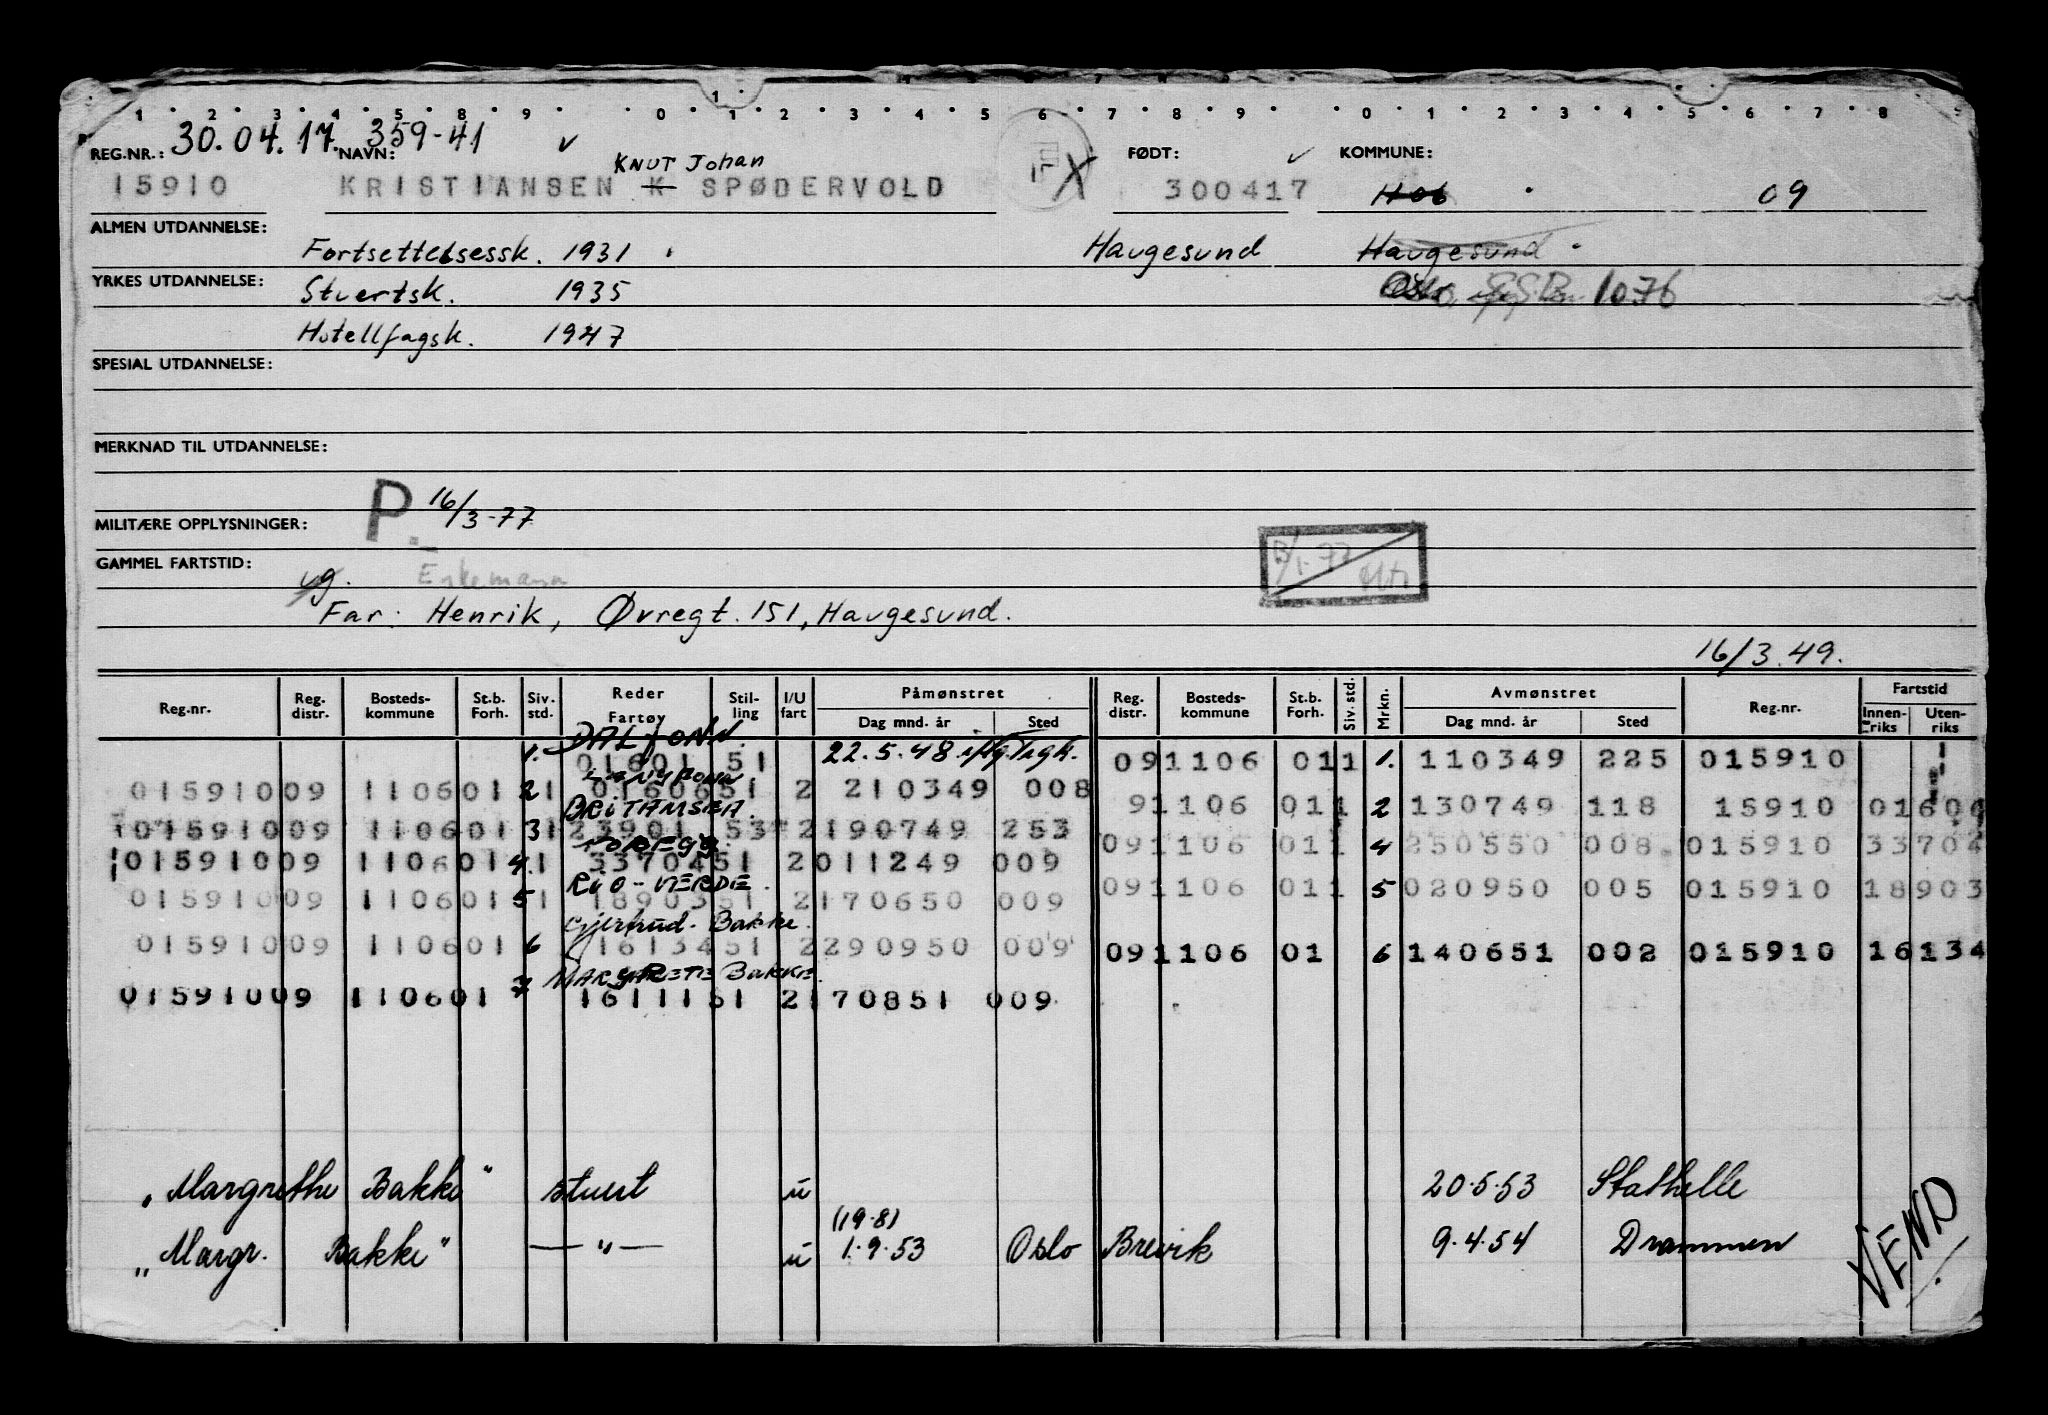 1 2 3 4 5 8 9 0 1 2 3 4 5 6 7 8 9 0 1 2 3 4 5 6 7 8 9
REG.NR.: 30.04.17. NAVN: 359-41 FØDT: KOMMUNE:
KNUT Johan
15910 KRISTIANSEN K SPØDERVOLD X 300417 H06 09
ALMEN UTDANNELSE: Fortsettelsessk. 1931 Haugesund Haugesund
YRKES UTDANNELSE: Stuertsk. 1935 Oslo 1076
Hotellfagsk. 1947
SPESIAL UTDANNELSE:
MERKNAD TIL UTDANNELSE:
MILITÆRE OPPLYSNINGER: P. 16/3-77
GAMMEL FARTSTID: ug.
Far: Henrik, Øvregt. 151, Haugesund.
16/3.49.
Reg.nr. Reg. distr. Bosteds-kommune St.b. Forh. Siv. std. Reder Fartøy Stil-ling I/U fart Påmønstret Dag mnd. år Sted Reg. distr. Bosteds-kommune St.b. Forh. Siv. std. Mrkn. Avmønstret Dag mnd. år Sted Reg.nr. Fartstid Innen-riks Uten-riks
1. DALFONN
01601 51 22.5.48 091106 011 1. 110349 225 015910
015910 09 1106 01 1 2 01606 51 2 210349 008
BRITAMSEA. 91106 011 2 130749 118 15910 01606
015910 09 1106 01 3 1 23901 53 2 190749 253
TOREGG. 091106 011 4 250550 008 015910 33704
015910 09 1106 01 4. 1 33704 51 2 011249 009
RIO-VERDE. 091106 011 5 020950 005 015910 18903
015910 09 1106 01 5 1 18903 51 2 170650 009
Gjertrud-Bakke.
015910 09 1106 01 6 16134 51 2 290950 009 091106 01 6 140651 002 015910 16134
7 MARGRETE BAKKE.
015910 09 1106 01 16111 51 2 170851 009
"Margrethe Bakke" stuert u 20.5.53 Stathelle
(19.8)
"Margr. Bakke" — " — u 1.9.53 Oslo Brevik 9.4.54 Drammen
VEND.